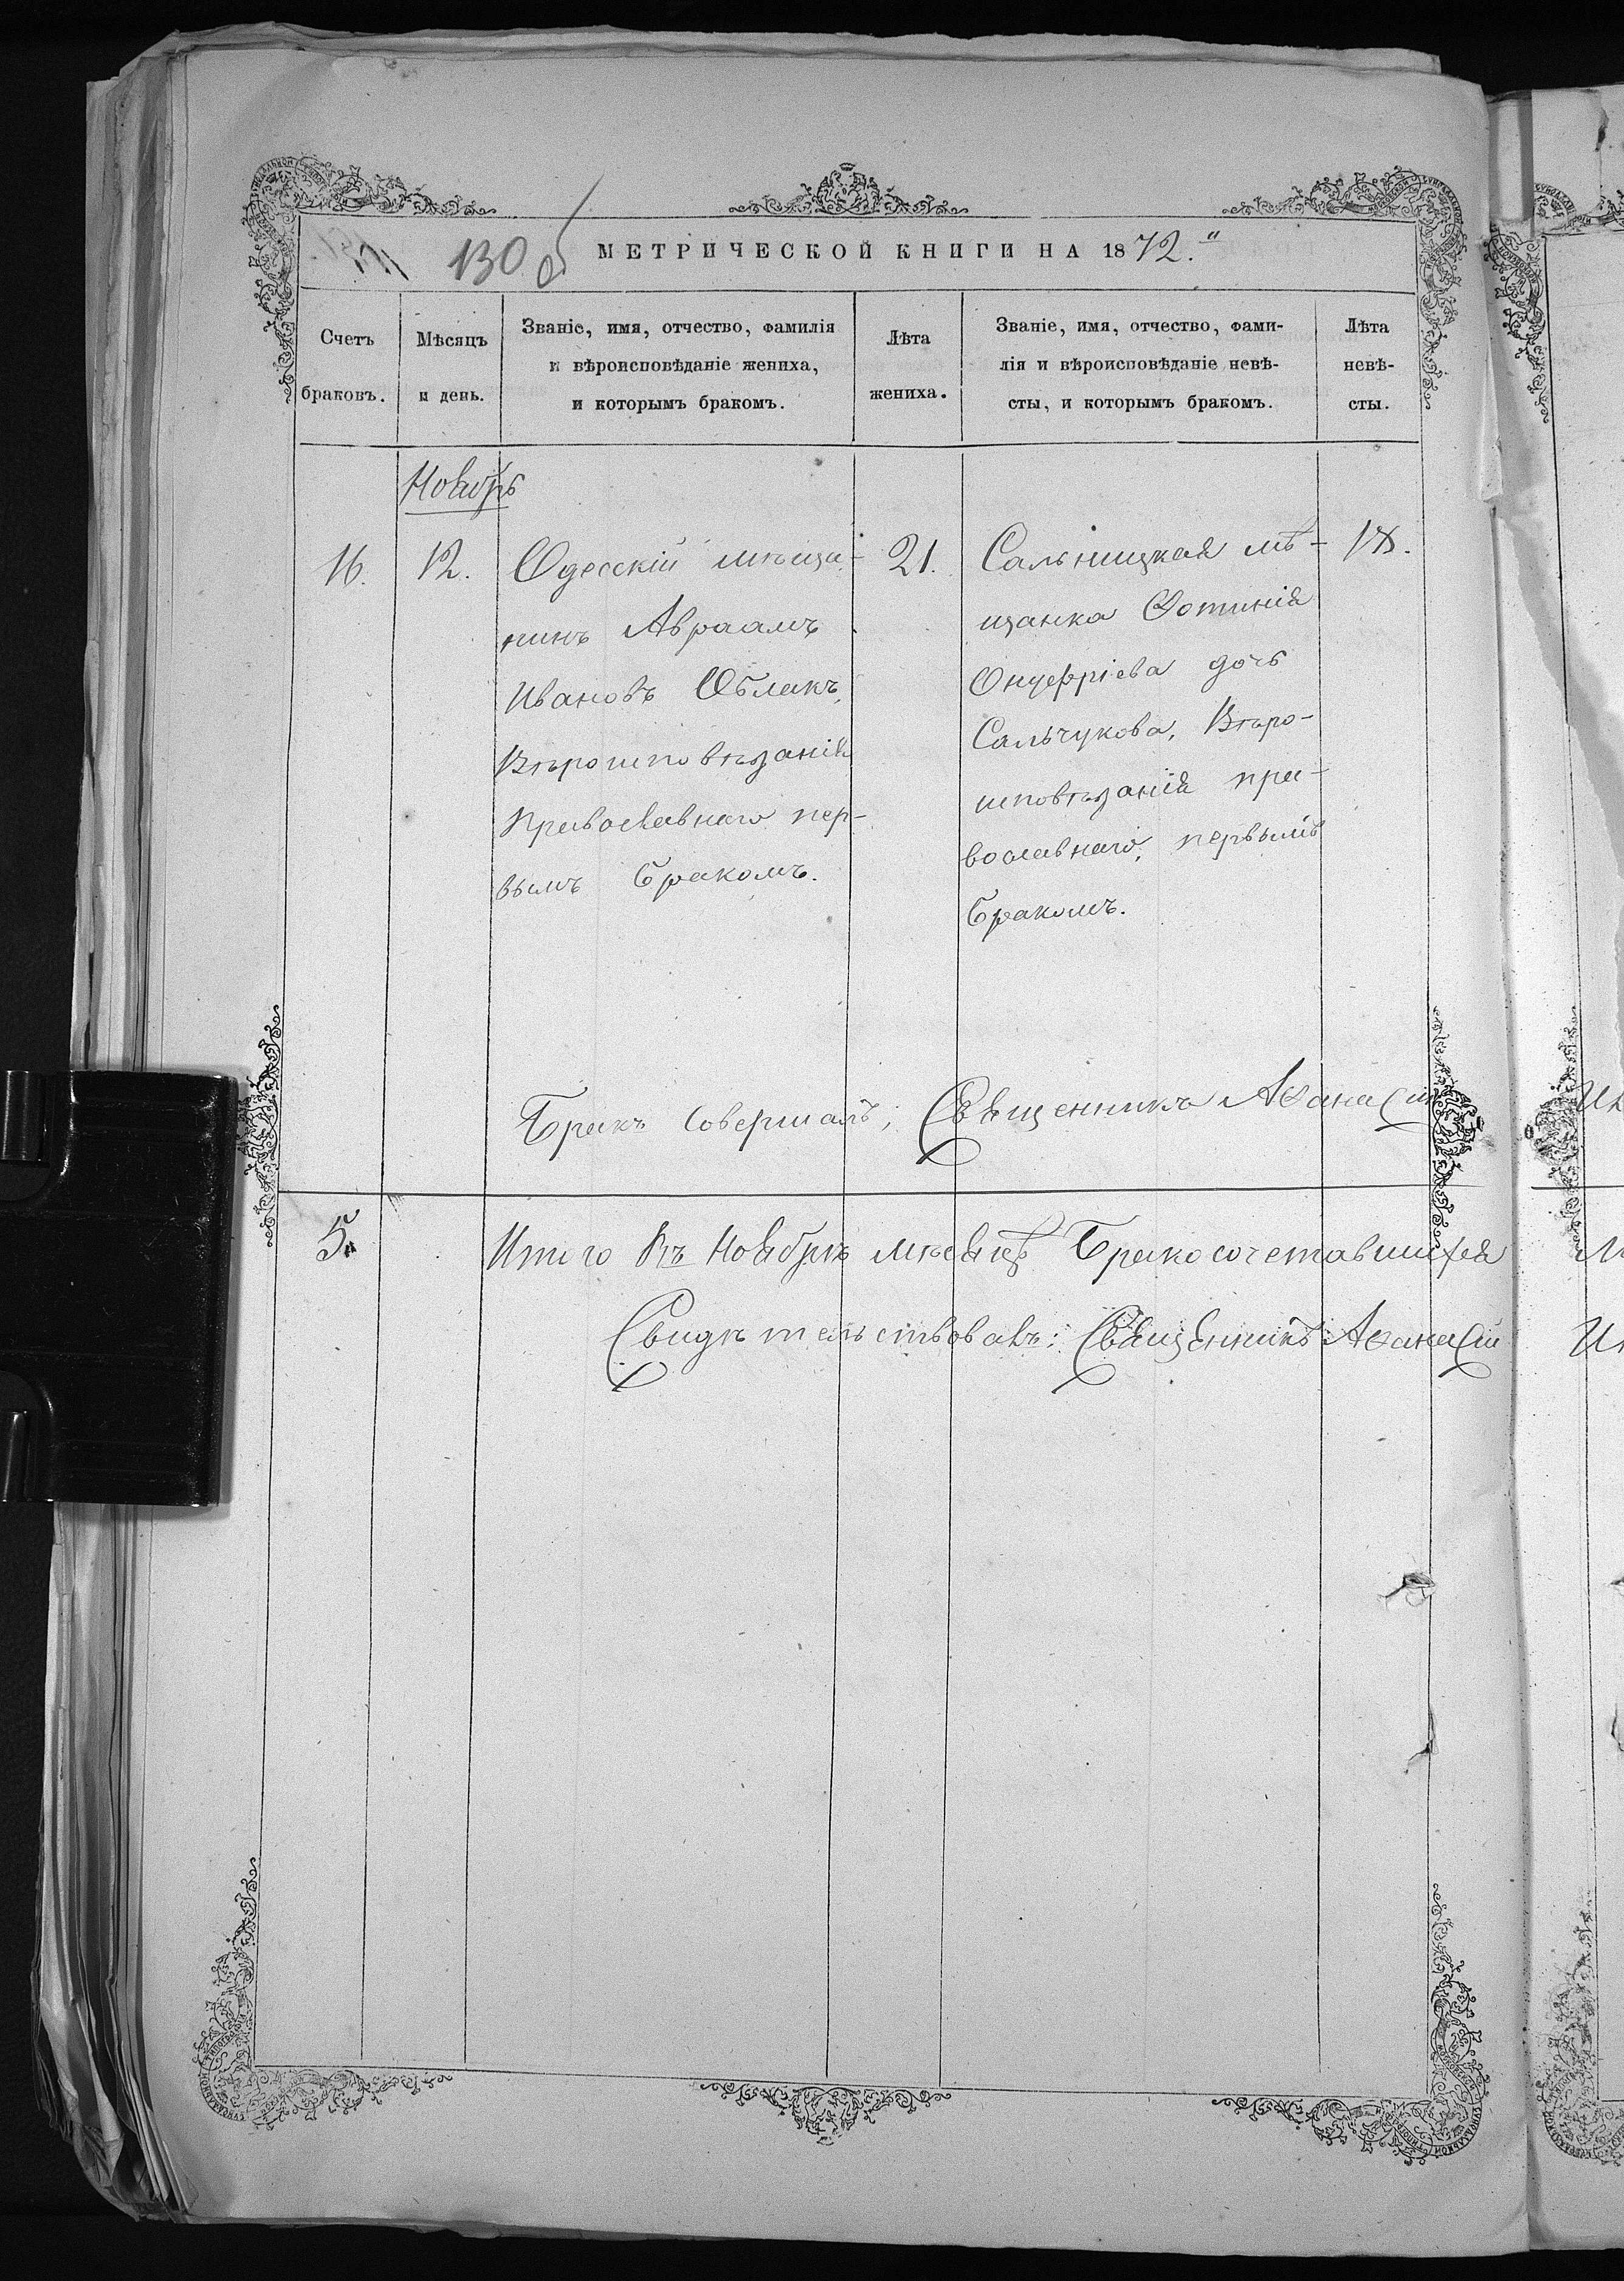 130 об
МЕТРИЧЕСКОЙ КНИГИ НА 1872.
Счетъ браковъ.
Мѣсяцъ и день.
Званіе, имя, отчество, фамилія
и вѣроисповѣданіе жениха,
и которымъ бракомъ.
Лѣта жениха.
Званіе, имя, отчество, фами-
лія и вѣроисповѣданіе невѣ-
сты, и которымъ бракомъ.
Лѣта невѣ-
сты.
Ноябрь
16.
12.
Одесскій мѣща-
нинъ Авраамъ
Ивановъ Облакъ,
Вѣроисповѣданія
Православнаго пер-
вымъ бракомъ.
21.
Сальницкая мѣ-
щанка Фотинія
Онуфріева дочь
Сальчукова, Вѣро-
исповѣданія пра-
вославнаго, первымъ
бракомъ.
18.
Бракъ совершалъ; Священникъ Аѳанасій
5.
Итого въ Ноябрѣ мѣсяцѣ Бракосочетавшихся
Свидѣтельствовалъ: Священникъ Аѳанасій